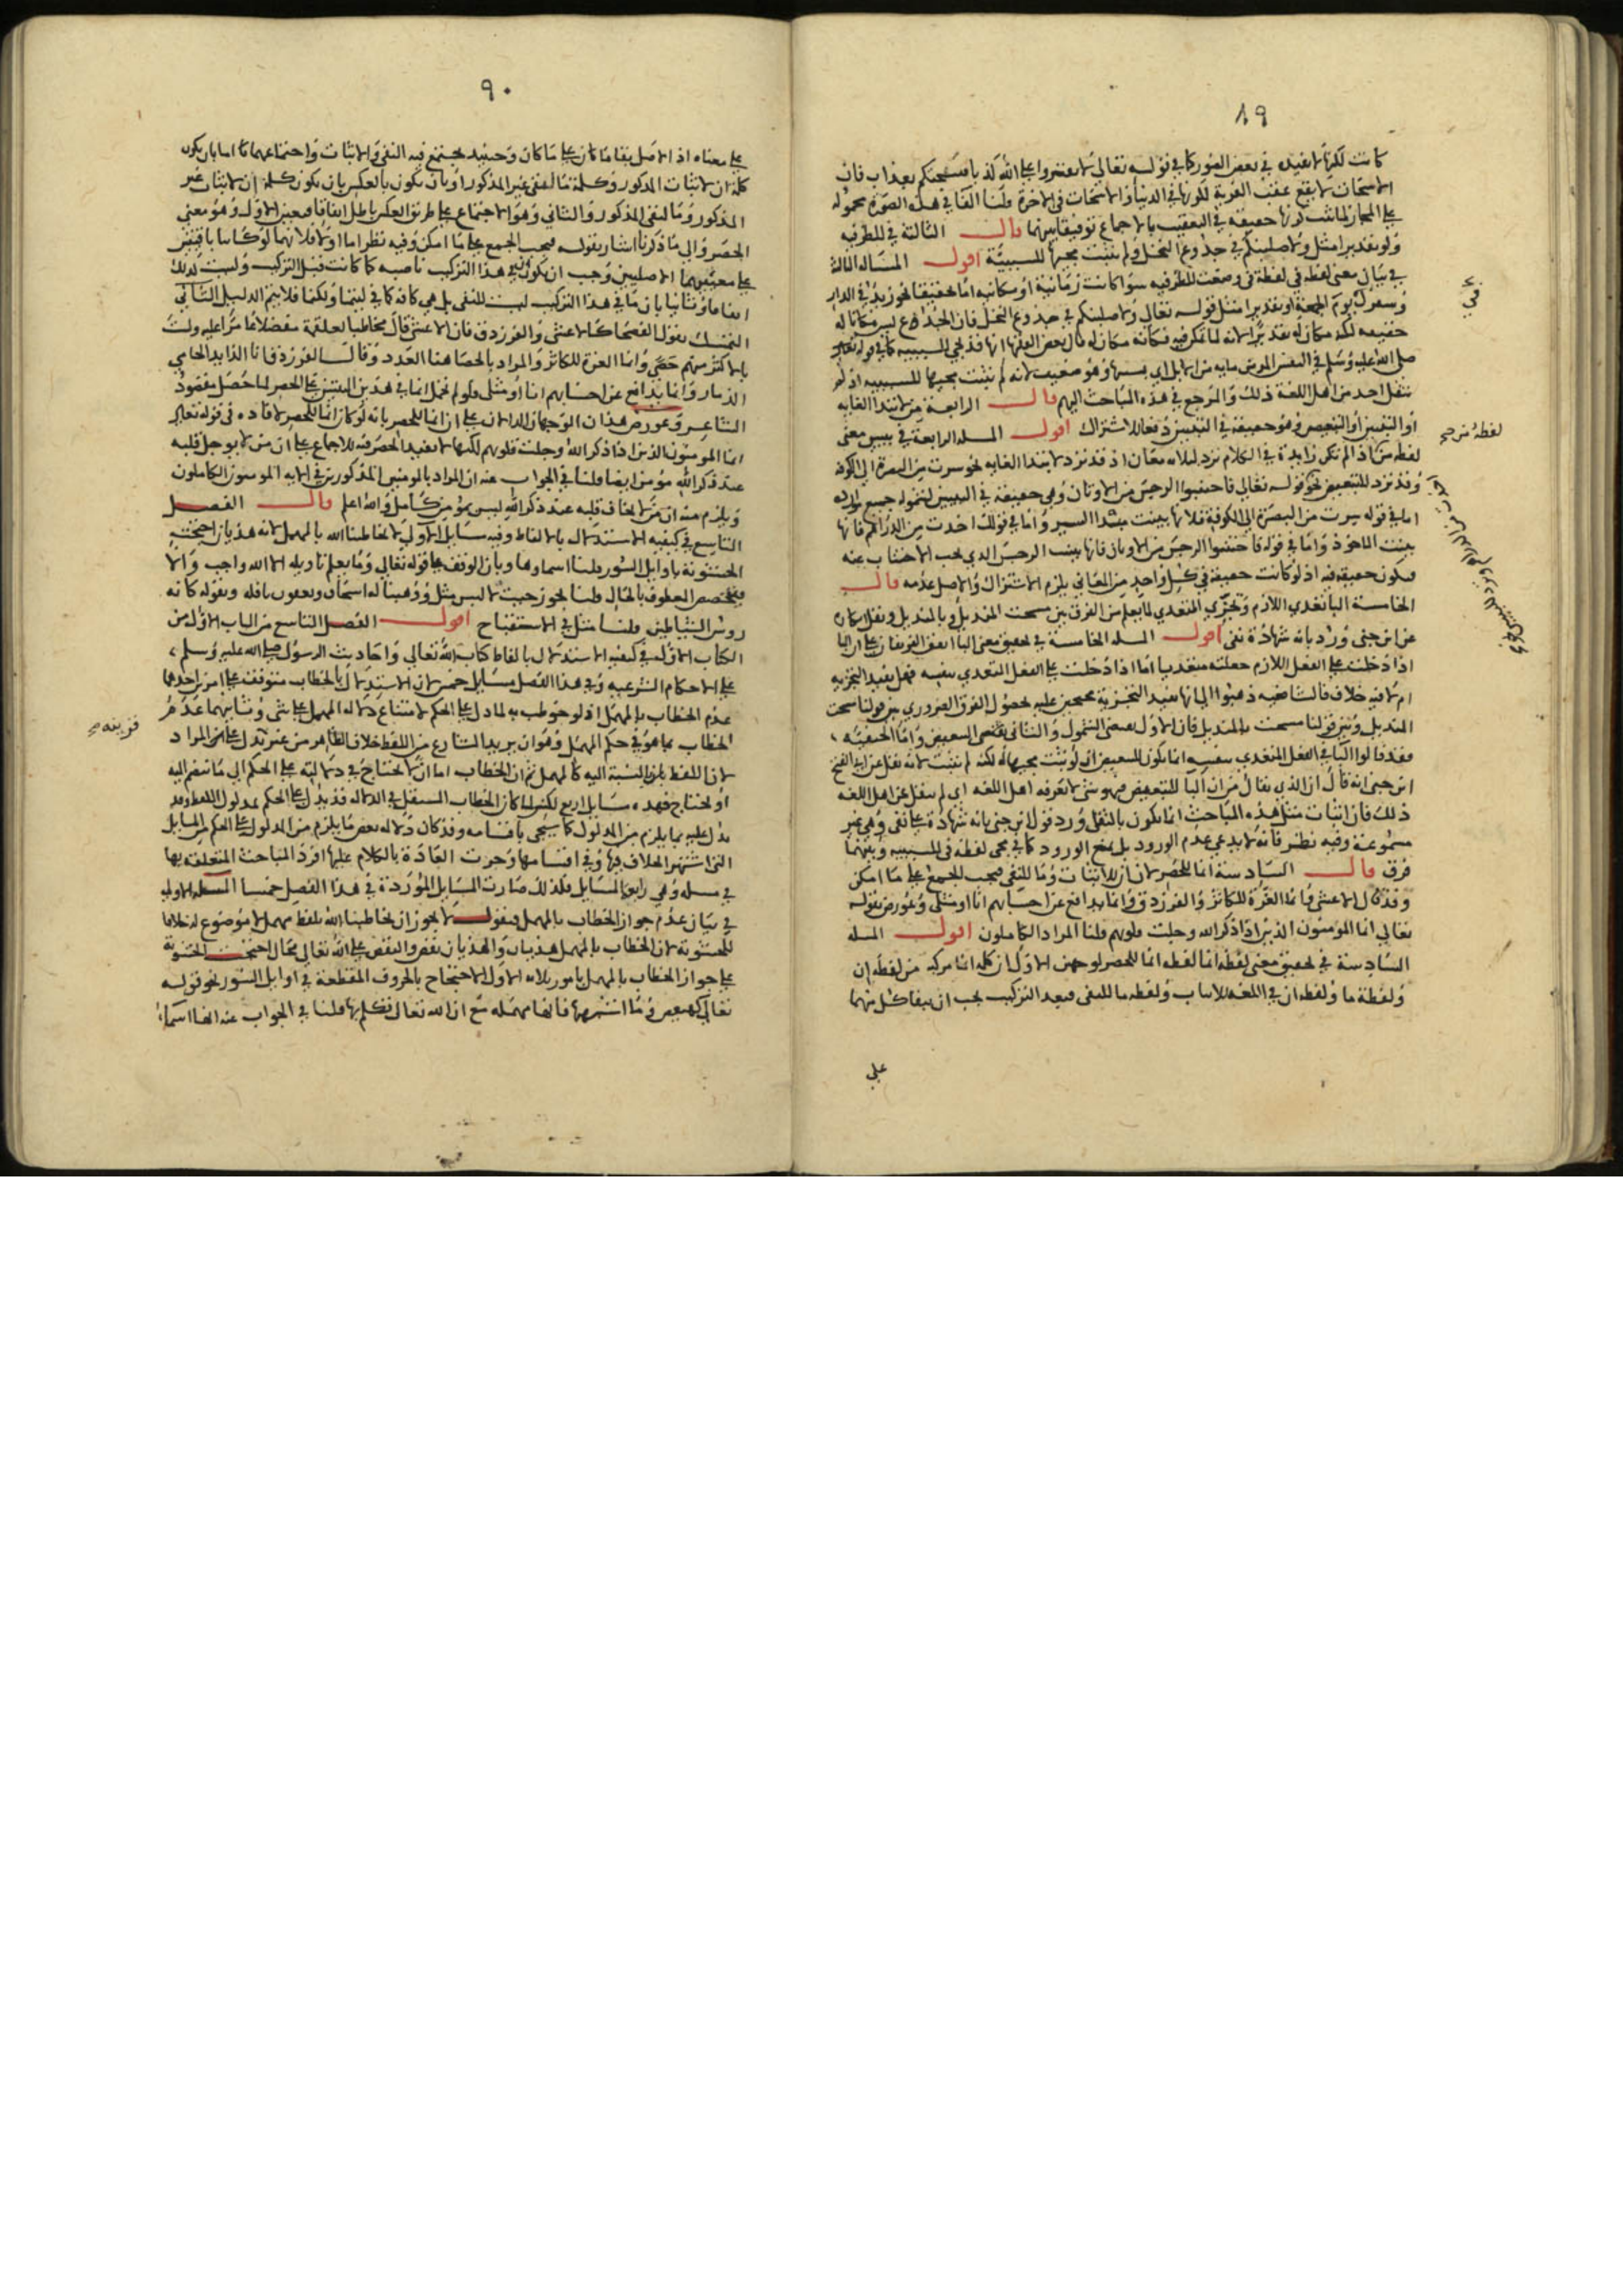 ٨٩
كانت لكنها لا تفيده في بعض الصور كما في قوله تعالى لا تفتروا على الله كذبا فيسحتكم بعذاب فان
الاسحات لا يقع عقيب الفرية لكونها في الدنيا والاسحات في الاخرة قلنا الفا في هذه الصورة محمولة
على المجاز لما ثبت كونها حقيقة في التعقيب بالاجماع توفيقا بينهما قال الثالثة في للظرفية
ولو تقديرا مثل ولاصلبنكم في جذوع النخل ولم يثبت مجيها للسببية اقول المسالة الثالثة
في بيان معنى لفظة في لفظة في وضعت للظرفية سوا كانت زمانية او مكانية اما تحقيقا نحو زيد في الدار
وسفرك يوم الجمعة او تقديرا مثل قوله تعالى ولاصلبنكم في جذوع النخل فان الجذوع ليس مكانا له
حقيقة لكنه مكان له تقديرا لانه لما تمكن فيه فكانه مكان له قال بعض الفقها انها قد تجي للسببية كما في قوله
صلى الله عليه وسلم في النفس المومن ماية من الابل اي بسببها وهو ضعيف لانه لم يثبت مجيها للسببية اذ لم
ينقل احد من اهل اللغة ذلك والمرجع في هذه المباحث اليهم قال الرابعة من لابتدا الغاية
او التبيين او التبعيض وهو حقيقة في التبيين دفعا للاشتراك اقول المسلة الرابعة في تبيين معنى
لفظة من اذا لم تكن زايدة في الكلام ترد لثلاثة معان اذ قد ترد لابتدا الغاية نحو سرت من البصرة الى الكوفة
وقد ترد للتبعيض نحو قوله تعالى فاجتنبوا الرجس من الاوثان وهي حقيقة في التبيين لشموله جميع موارده
اما في قوله سرت من البصرة الى الكوفة فلانها بينت مبتدا السير واما في قولك اخذت من الدراهم فانها
بينت الماخوذ واما في قوله فاجتنبوا الرجس من الاوثان فانها بينت الرجس الذي يجب الاجتناب عنه
فيكون حقيقة فيه اذ لو كانت حقيقة في كل واحد من المعاني يلزم الاشتراك والاصل عدمه قال
الخامسة البا تعدي اللازم وتجزي المتعدي لما يعلم من الفرق بين مسحت المنديل وبالمنديل ونقل انكاره
عن ابن جني ورد بانه شهادة نفي اقول المسلة الخامسة في تحقيق معنى البا اتفق الفريقان على ان البا
اذا دخلت على الفعل اللازم جعلته متعديا اما اذا دخلت على الفعل المتعدي بنفسه فهل يفيد التجزية
ام لا فيه خلاف فالشافعية ذهبوا الى انها تفيد التجزية محتجين عليه بحصول الفرق الضروري بين قولنا مسحت
المنديل وبين قولنا مسحت بالمنديل فان الاول يقتضي الشمول والثاني يقتضي التبعيض واما الحنفية
فقد قالوا البا في الفعل المتعدي بنفسه انما يكون للتبعيض ان لو ثبت مجيها له لكنه لم يثبت لانه نقل عن ابي الفتح
ابن جني انه قال ان الذي يقال من ان البا للتبعيض فهو شي لا يعرفه اهل اللغة اي لم ينقل عن اهل اللغة
ذلك فان اثبات مثل هذه المباحث انما يكون بالنقل ورد قول ابن جني بانه شهادة على نفي وهي غير
مسموعة وفيه نظر فانه لا يدعي عدم الورود بل يمنع الورود كما في مجي لفظة في للسببية وبينهما
فرق قال السادسة انما للحصر لان ان للاثبات وما للنفي فيجب الجمع على ما امكن
وقد قال الاعشى وانما العزة للكاثر والفرزدق وانما يدافع عن احسابهم انا او مثلي وعورض بقوله
تعالى انما المومنون الذين اذا ذكر الله وجلت قلوبهم قلنا المراد الكاملون اقول المسلة
السادسة في تحقيق معنى لفظة انما لفظة انما للحصر لوجهين الاول ان كلمة انما مركبة من لفظة ان
ولفظة ما ولفظة ان في اللغة للاثبات ولفظة ما للنفي فبعد التركيب يجب ان يبقا كل منهما
على
لفظة من صح
٩٠
على معناه اذ الاصل بقا ما كان على ما كان وحينيذ يجتمع فيه النفي والاثبات واجتماعهما اما بان يكون
كلمة ان لاثبات المذكور وكلمة ما لنفي غير المذكور او بان يكون بالعكس بان يكون كلمة ان لاثبات غير
المذكور وما لنفي المذكور والثاني وهو الاجتماع على طريق العكس باطل اتفاقا فتعين الاول وهو معنى
الحصر والى ما ذكرنا اشار بقوله فيجب الجمع على ما امكن وفيه نظر اما اولا فلانهما لو كانا باقيتين
على معنييهما الاصليين وجب ان يكون ان في هذا التركيب ناصبة كما كانت قبل التركيب وليست كذلك
اتفاقا وثانيا بان ما في هذا التركيب ليست للنفي بل هي كافة كما في ليتما ولكنما فلا يتم الدليل الثاني
التمسك بقول الفصحا كالاعشى والفرزدق فان الاعشى قال مخاطبا لعلقمة مفضلا عامرا عليه ولست
بالاكثر منهم حصى وانما العزة للكاثر والمراد بالحصا هنا العدد وقال الفرزدق انا الذايد الحامي
الذمار وانما يدافع عن احسابهم انا او مثلي ولو لم تحمل انما في هذين البيتين على الحصر لما حصل مقصود
الشاعر وعورض هذان الوجهان الدالان على ان انما للحصر بانه لو كان انما للحصر لافاده في قوله تعالى
انما المومنون الذين اذا ذكر الله وجلت قلوبهم لكنها لا تفيد الحصر فيه للاجماع على ان من لا يوجل قلبه
عند ذكر الله مومن ايضا قلنا في الجواب عنه ان المراد بالمومنين المذكورين في الاية المومنون الكاملون
ويلزم منه ان من لا يخاف قلبه عند ذكر الله ليس بمومن كامل والله اعلم قال الفصل
التاسع في كيفية الاستدلال بالالفاظ وفيه مسايل الاولى لا يخاطبنا الله بالمهمل لانه هذيان احتجت
الحشوية باوايل السور قلنا اسماوها وبان الوقف على قوله تعالى وما يعلم تاويله الا الله واجب والا
يختص المعطوف بالحال قلنا يجوز حيث لا لبس مثل ووهبنا له اسحاق ويعقوب نافلة وبقوله كانه
روس الشياطين قلنا مثل في الاستقباح اقول الفصل التاسع من الباب الاول من
الكتاب الاول في كيفية الاستدلال بالفاظ كتاب الله تعالى واحاديث الرسول صلى الله عليه وسلم
على الاحكام الشرعية وفي هذا الفصل مسايل خمس لان الاستدلال بالخطاب متوقف على امرين احدهما
عدم الخطاب بالمهمل اذ لو خوطب به لما دل على الحكم لامتناع دلالة المهمل على شي وثانيهما عدم
الخطاب بما هو في حكم المهمل وهو ان يريد الشارع من اللفظ خلاف الظاهر من غير تدل على المراد
لان اللفظ بالنسبة اليه كالمهمل ثم ان الخطاب اما ان لا يحتاج في دلالته على الحكم الى ما ينضم اليه
او يحتاج فهذه مسايل اربع لكن لما كان الخطاب المستقل في الدلالة قد يدل على الحكم بمدلول اللفظ وقد
يدل عليه بما يلزم من المدلول كما سيجي باقسامه وقد كان دلالة بعض ما يلزم من المدلول على الحكم من المسايل
التي اشتهر الخلاف فيها وفي اقسامها وجرت العادة بالكلام عليها افرد المباحث المتعلقة بها
في مسلة وهي رابع المسايل فلذلك صارت المسايل الموردة في هذا الفصل خمسا المسلة الاولى
في بيان عدم جواز الخطاب بالمهمل فنقول لا يجوز ان يخاطبنا الله بلفظ مهمل لا موضوع له خلافا
للحشوية لان الخطاب بالمهمل هذيان والهذيان نقص والنقص على الله تعالى محال احتجت الحشوية
على جواز الخطاب بالمهمل بامور ثلاثة الاول الاحتجاج بالحروف المقطعة في اوايل السور نحو قوله
تعالى كهيعص وما اشبهها فانها مهملة مع ان الله تعالى تكلم بها قلنا في الجواب عنه انها اسما
قرينة صح